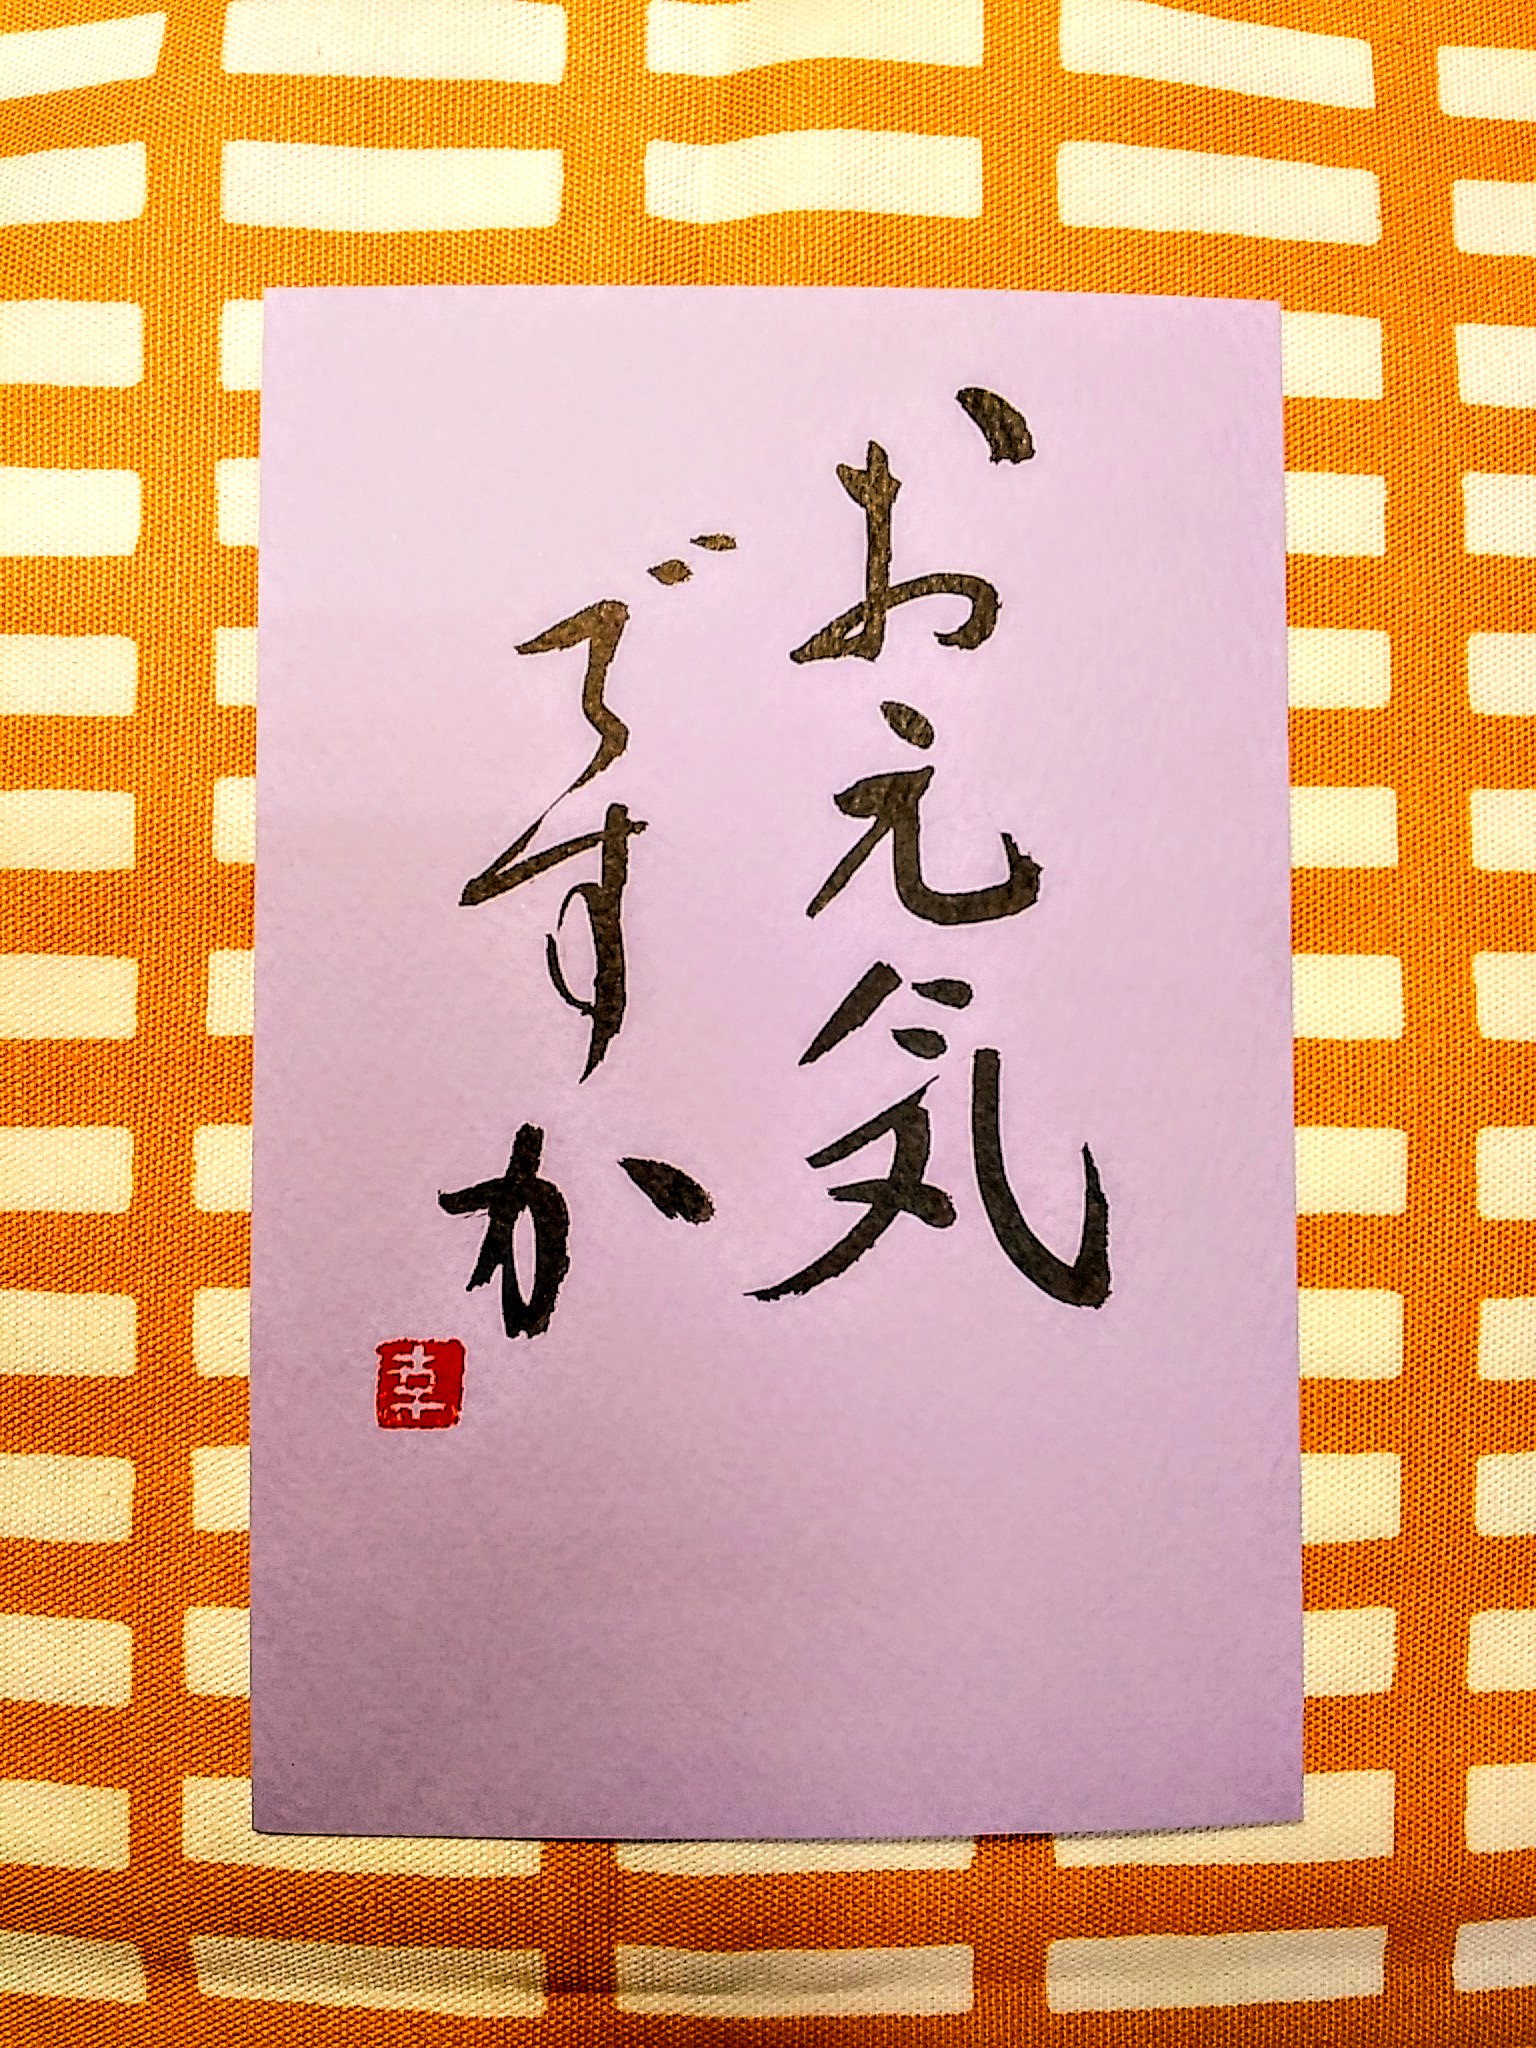 お元気
ですか
幸